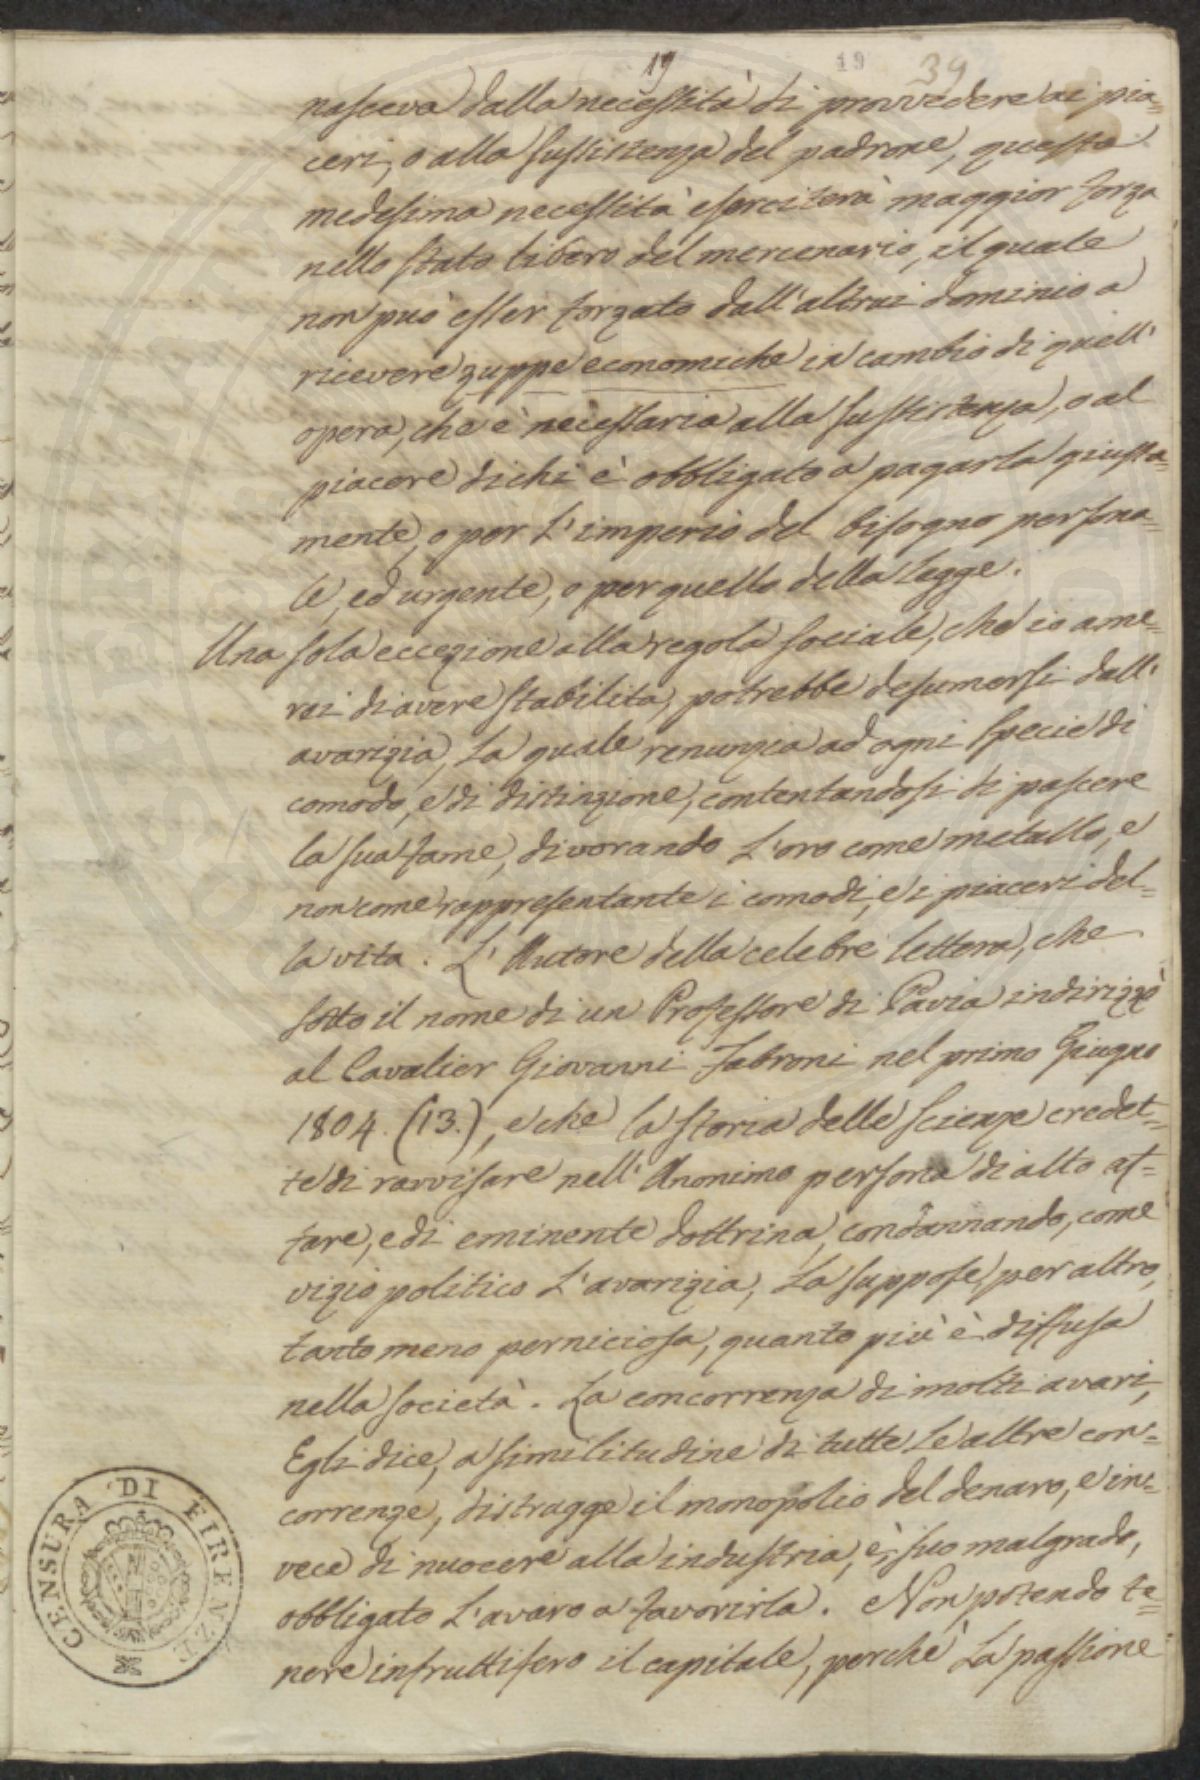 19 19 39
nasceva dalla necessità di provvedere ai pia=
ceri, o alla sussistenza del padrone, questa
medesima necessità eserciterà maggior forza
nello stato libero del mercenario, il quale
non può esser forzato dall'altrui dominio a
ricevere zuppe economiche in cambio di quell'
opera, che è necessaria alla sussistenza, o al
piacere di chi è obbligato a pagarla giusta=
mente, o per l'imperio del bisogno persona=
le, ed urgente, o per quello della legge.
Una sola eccezione alla regola sociale, che io ame=
rei di avere stabilita, potrebbe desumersi dall'
avarizia, la quale renunzia ad ogni specie di
comodo, e di distinzione, contentandosi di pascere
la sua fame, divorando l'oro come metallo, e
non come rappresentante i comodi, e i piaceri del=
la vita. L'Autore della celebre lettera, che
sotto il nome di un Professore di Pavia indirizzò
al Cavalier Giovanni Fabroni nel primo Giugno
1804. (13.), e che la storia delle scienze credet=
te di ravvisare nell'Anonimo persona di alto af=
fare, e di eminente dottrina, condannando, come
vizio politico l'avarizia, la suppose, per altro,
tanto meno perniciosa, quanto più è diffusa
nella società. La concorrenza di molti avari,
Egli dice, a similitudine di tutte le altre con=
correnze, distrugge il monopolio del denaro, e in=
vece di nuocere alla industria, è, suo malgrado,
obbligato l'avaro a favorirla. Non potendo te=
nere infruttifero il capitale, perchè la passione
CENSURA DI FIRENZE